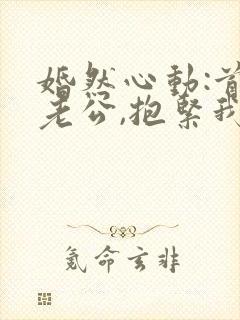 婚然心動:首
老公,抱緊我
氪命玄非